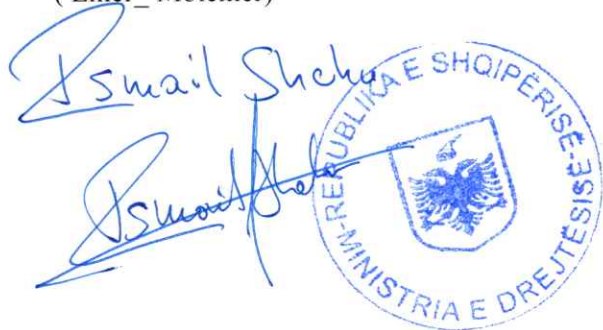 Ismail Shehu
Ismail Shehu
-REPUBLIKA E SHQIPËRISË-
-MINISTRIA E DREJTËSISË-